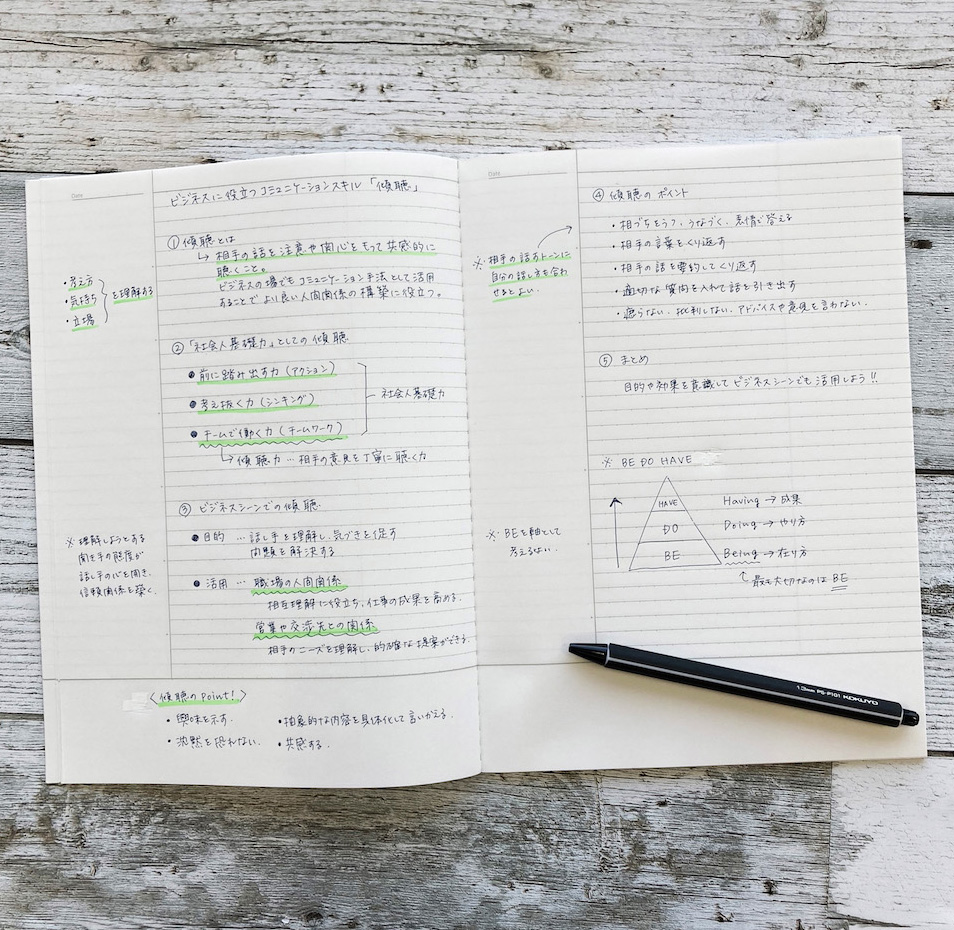 Date
ビジネスに役立つコミュニケーションスキル「傾聴」
① 傾聴とは
↳ 相手の話を注意や関心をもって共感的に
聴くこと。
ビジネスの場でもコミュニケーション手法として活用
することでより良い人間関係の構築に役立つ。
・考え方
・気持ち
・立場
を理解する
② 「社会人基礎力」としての傾聴
● 前に踏み出す力（アクション）
● 考え抜く力（シンキング）
● チームで働く力（チームワーク）
社会人基礎力
↳ 傾聴力…相手の意見を丁寧に聴く力
③ ビジネスシーンでの傾聴
● 目的 … 話し手を理解し、気づきを促す
問題を解決する
● 活用 … 職場の人間関係
相互理解に役立ち、仕事の成果を高める。
営業や交渉先との関係
相手のニーズを理解し、的確な提案ができる。
※ 理解しようとする
聞き手の態度が
話し手の心を開き、
信頼関係を築く。
〈傾聴のPoint!〉
・興味を示す。
・沈黙を恐れない。
・抽象的な内容を具体化して言いかえる。
・共感する。
Date
④ 傾聴のポイント
・相づちをうつ、うなづく、表情で答える
・相手の言葉をくり返す
・相手の話を要約してくり返す
・適切な質問を入れて話を引き出す
・遮らない、批判しない、アドバイスや意見を言わない。
※ 相手の話すトーンに
自分の話し方を合わ
せるとよい。
⑤ まとめ
目的や効果を意識してビジネスシーンでも活用しよう!!
※ BE DO HAVE
HAVE
DO
BE
Having → 成果
Doing → やり方
Being → 在り方
↑ 最も大切なのは BE
※ BEを軸として
考えるとよい。
1.3mm PS-P101 KOKUYO